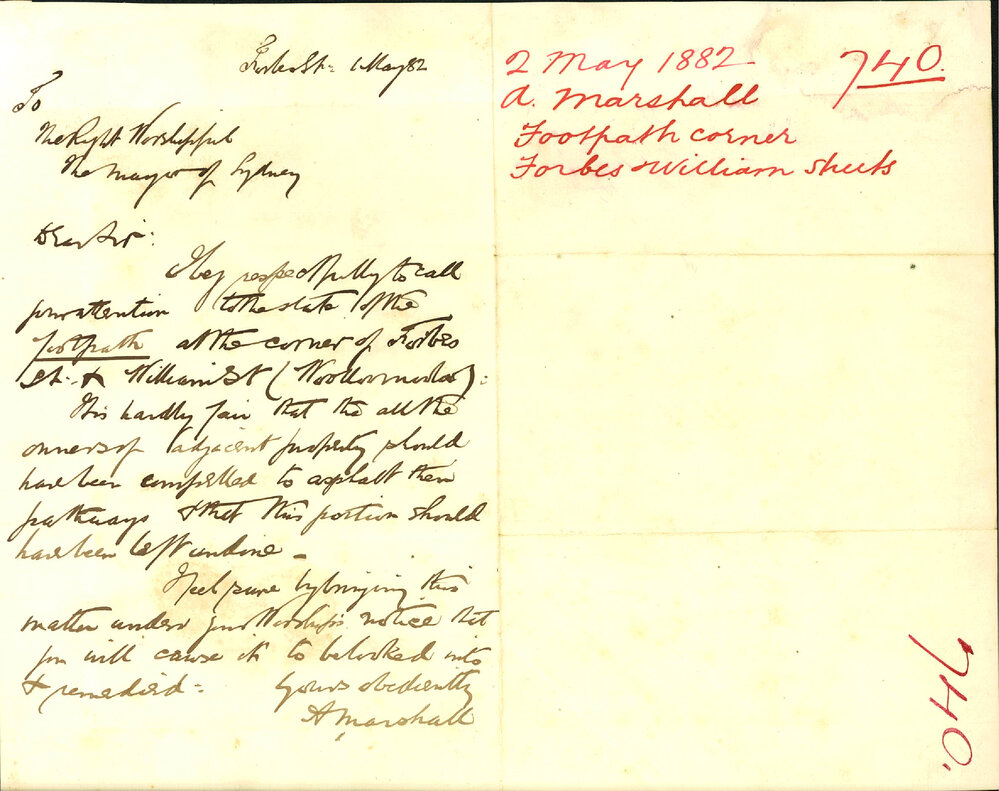 Forbes St: 1 May 82
To
The Right Worshipful
The Mayor of Sydney
Dear Sir:
I beg respectfully to call
your attention to the state of the
footpath at the corner of Forbes
St. & William St (Woolloomooloo):
It is hardly fair that the all the
owners of adjacent property should
have been compelled to asphalt their
pathways & that this portion should
have been left undone -
I feel sure by bringing this
matter under your Worship's notice that
you will cause it to be looked into
& remedied:
Yours obediently
A Marshall
2 May 1882
740.
A. Marshall
Footpath corner
Forbes & William Streets
740.